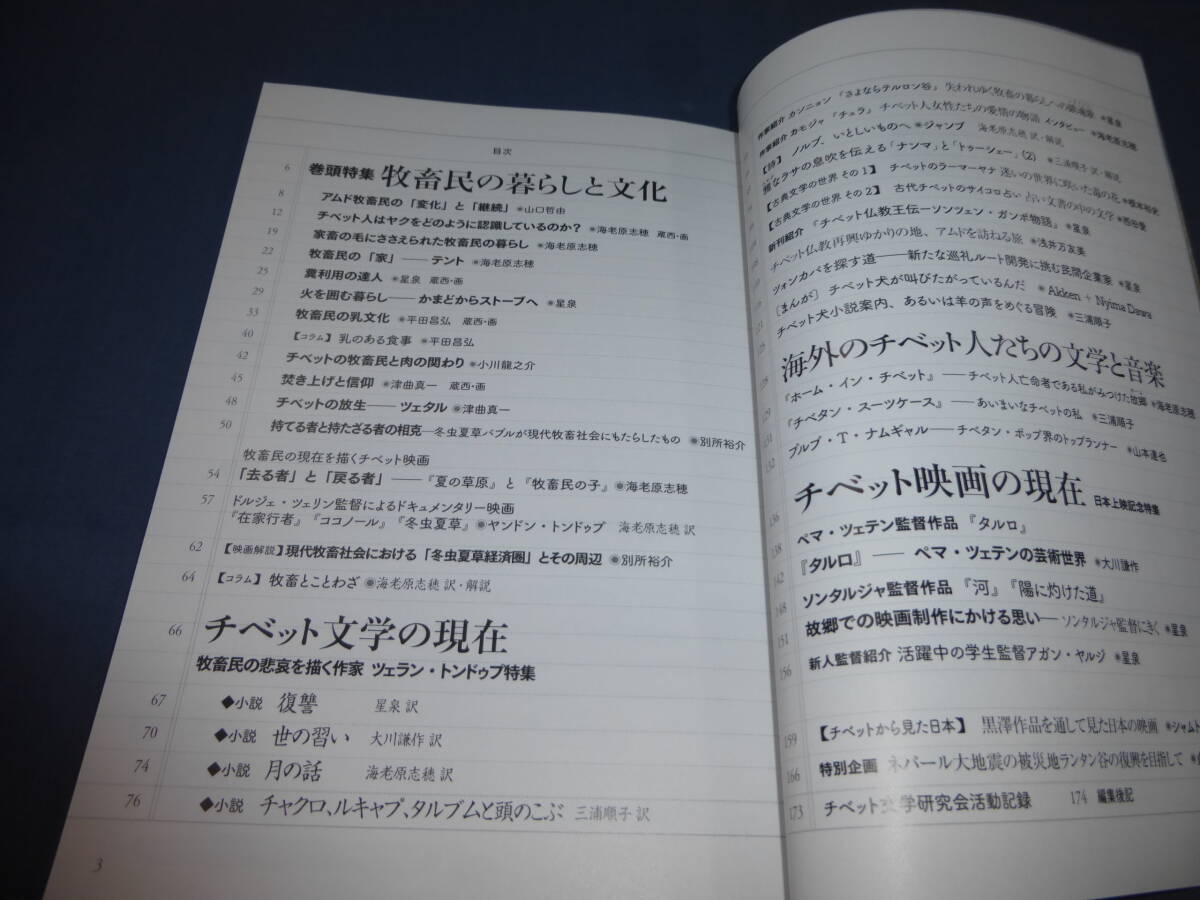 目次
6 巻頭特集 牧畜民の暮らしと文化
8 アムド牧畜民の「変化」と「継続」 ◉山口哲由
12 チベット人はヤクをどのように認識しているのか? ◉海老原志穂 蔵西・画
19 家畜の毛にささえられた牧畜民の暮らし ◉海老原志穂
22 牧畜民の「家」——テント ◉海老原志穂
25 糞利用の達人 ◉星泉 蔵西・画
29 火を囲む暮らし——かまどからストーブへ ◉星泉
33 牧畜民の乳文化 ◉平田昌弘 蔵西・画
40 【コラム】乳のある食事 ◉平田昌弘
42 チベットの牧畜民と肉の関わり ◉小川龍之介
45 焚き上げと信仰 ◉津曲真一 蔵西・画
48 チベットの放生——ツェタル ◉津曲真一
50 持てる者と持たざる者の相克—冬虫夏草バブルが現代牧畜社会にもたらしたもの ◉別所裕介
牧畜民の現在を描くチベット映画
54 「去る者」と「戻る者」——『夏の草原』と『牧畜民の子』 ◉海老原志穂
57 ドルジェ・ツェリン監督によるドキュメンタリー映画
『在家行者』『ココノール』『冬虫夏草』 ◉ヤンドン・トンドゥプ 海老原志穂 訳
62 【映画解説】現代牧畜社会における「冬虫夏草経済圏」とその周辺 ◉別所裕介
64 【コラム】牧畜とことわざ ◉海老原志穂 訳・解説
66 チベット文学の現在
牧畜民の悲哀を描く作家 ツェラン・トンドゥプ特集
67 ◆小説 復讐 星泉 訳
70 ◆小説 世の習い 大川謙作 訳
74 ◆小説 月の話 海老原志穂 訳
76 ◆小説 チャクロ、ルキャプ、タルブムと頭のこぶ 三浦順子 訳
3
作家紹介 カソニョン 『さよならテルロン谷』 失われゆく牧畜の暮らしへの ◉星泉
作家紹介 カモジャ 『チュラ』 チベット人女性たちの愛情の物語 インタビュー ◉海老原志穂
【詩】 ノルブ、いとしいものへ ◉ジャンプ 海老原志穂 訳・解説
雅なラサの息吹を伝える「ナンマ」と「トゥーシェー」(2) ◉三浦順子 訳・解説
【古典文学の世界 その1】 チベットのラーマーヤナ 迷いの世界に咲いた毒の花
【古典文学の世界 その2】 古代チベットのサイコロ占い 占い文書の中の文学 ◉西田愛
新刊紹介 『チベット仏教王伝—ソンツェン・ガンポ物語』 ◉星泉
チベット仏教再興ゆかりの地、アムドを訪ねる旅 ◉浅井万友美
ツォンカパを探す道——新たな巡礼ルート開発に挑む民間企業家 ◉星泉
〔まんが〕 チベット犬が叫びたがっているんだ ◉Akken + Nyima Dawa
チベット犬小説案内、あるいは羊の声をめぐる冒険 ◉三浦順子
海外のチベット人たちの文学と音楽
129 『ホーム・イン・チベット』——チベット人亡命者である私がみつけた故郷 ◉海老原志穂
131 『チベタン・スーツケース』——あいまいなチベットの私 ◉三浦順子
132 プルブ・T・ナムギャル——チベタン・ポップ界のトップランナー ◉山本達也
チベット映画の現在 日本上映記念特集
136 ペマ・ツェテン監督作品 『タルロ』
138 『タルロ』——ペマ・ツェテンの芸術世界 ◉大川謙作
142 ソンタルジャ監督作品 『河』『陽に灼けた道』
148 故郷での映画制作にかける思い——ソンタルジャ監督にきく ◉星泉
151 新人監督紹介 活躍中の学生監督アガン・ヤルジ ◉星泉
156
159 【チベットから見た日本】 黒澤作品を通して見た日本の映画
166 特別企画 ネパール大地震の被災地ランタン谷の復興を目指して
173 チベット文学研究会活動記録 174 編集後記